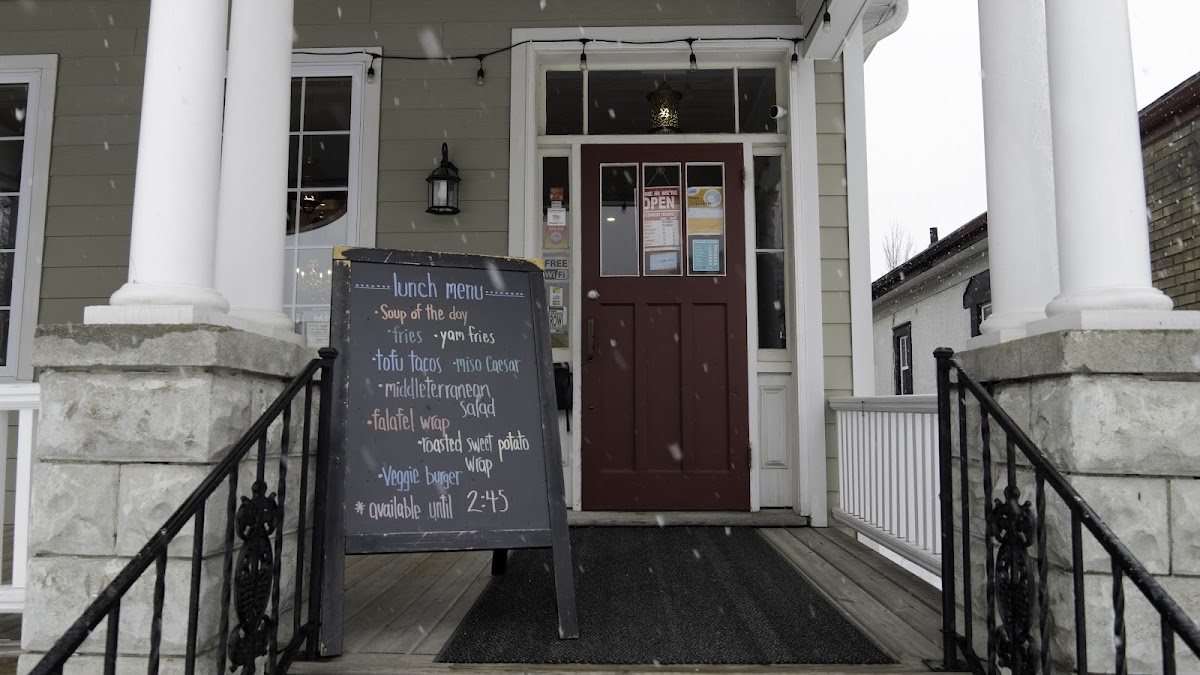 lunch menu
• Soup of the day
• fries • yam fries
• tofu tacos • miso Caesar
• middleterranean
salad
• falafel wrap
• roasted sweet potato
wrap
• Veggie burger
* available until 2:45
FREE
WiFi
OPEN